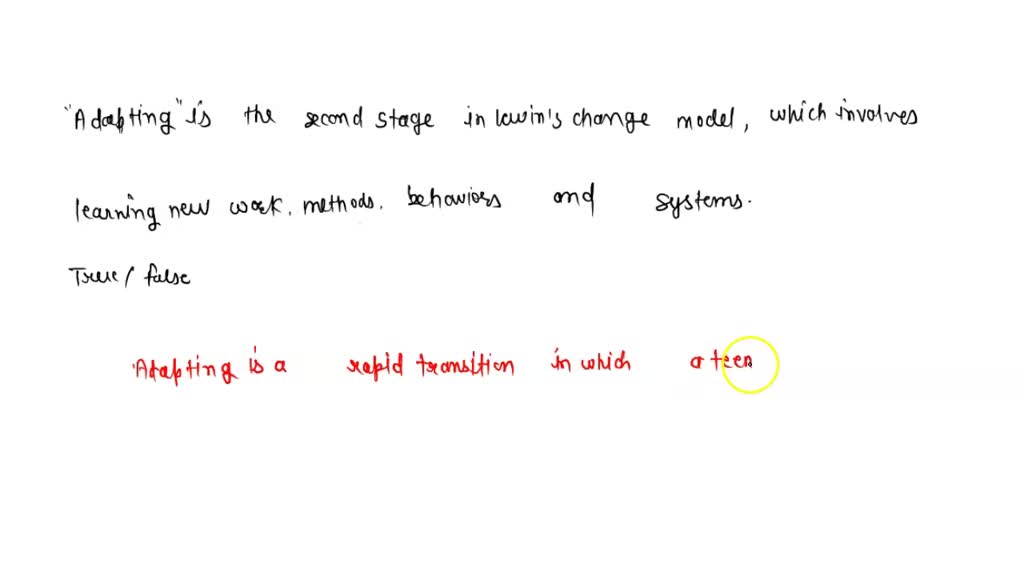 "Adapting" is the second stage in lewin's change model, which involves
learning new work, methods, behaviors and systems.
True/false
Adapting is a rapid transition in which a teen